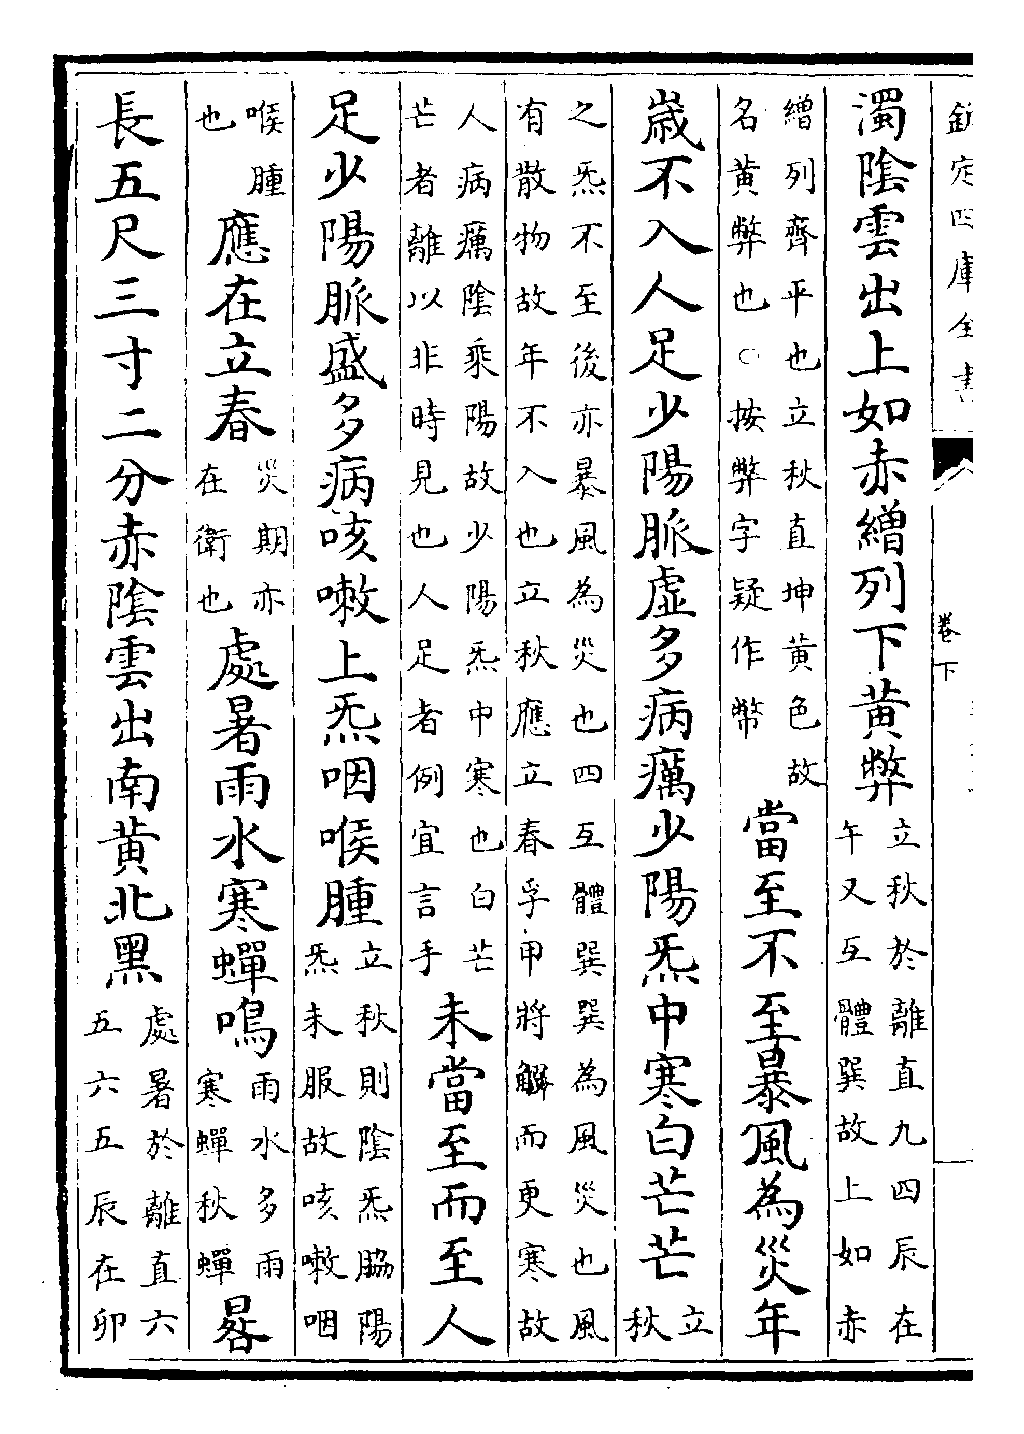 欽定四庫全書
卷下
濁陰雲出上如赤繒列下黃弊立秋於離直九四辰在
午又互體巽故上如赤
繒列齊平也立秋直坤黃色故
名黃弊也○按弊字疑作幣當至不至暴風為災年
歲不入人足少陽脈虛多病癘少陽炁中寒白芒芒立
秋
之炁不至後亦暴風為災也四互體巽巽為風災也風
有散物故年不入也立秋應立春孚甲將解而更寒故
人病癘陰乘陽故少陽炁中寒也白芒
芒者離以非時見也人足者例宜言手未當至而至人
足少陽脈盛多病咳嗽上炁咽喉腫立秋則陰炁脇陽
炁未服故咳嗽咽
喉腫
也應在立春災期亦
在衛也處暑雨水寒蟬鳴雨水多雨
寒蟬秋蟬晷
長五尺三寸二分赤陰雲出南黃北黑處暑於離直六
五六五辰在卯